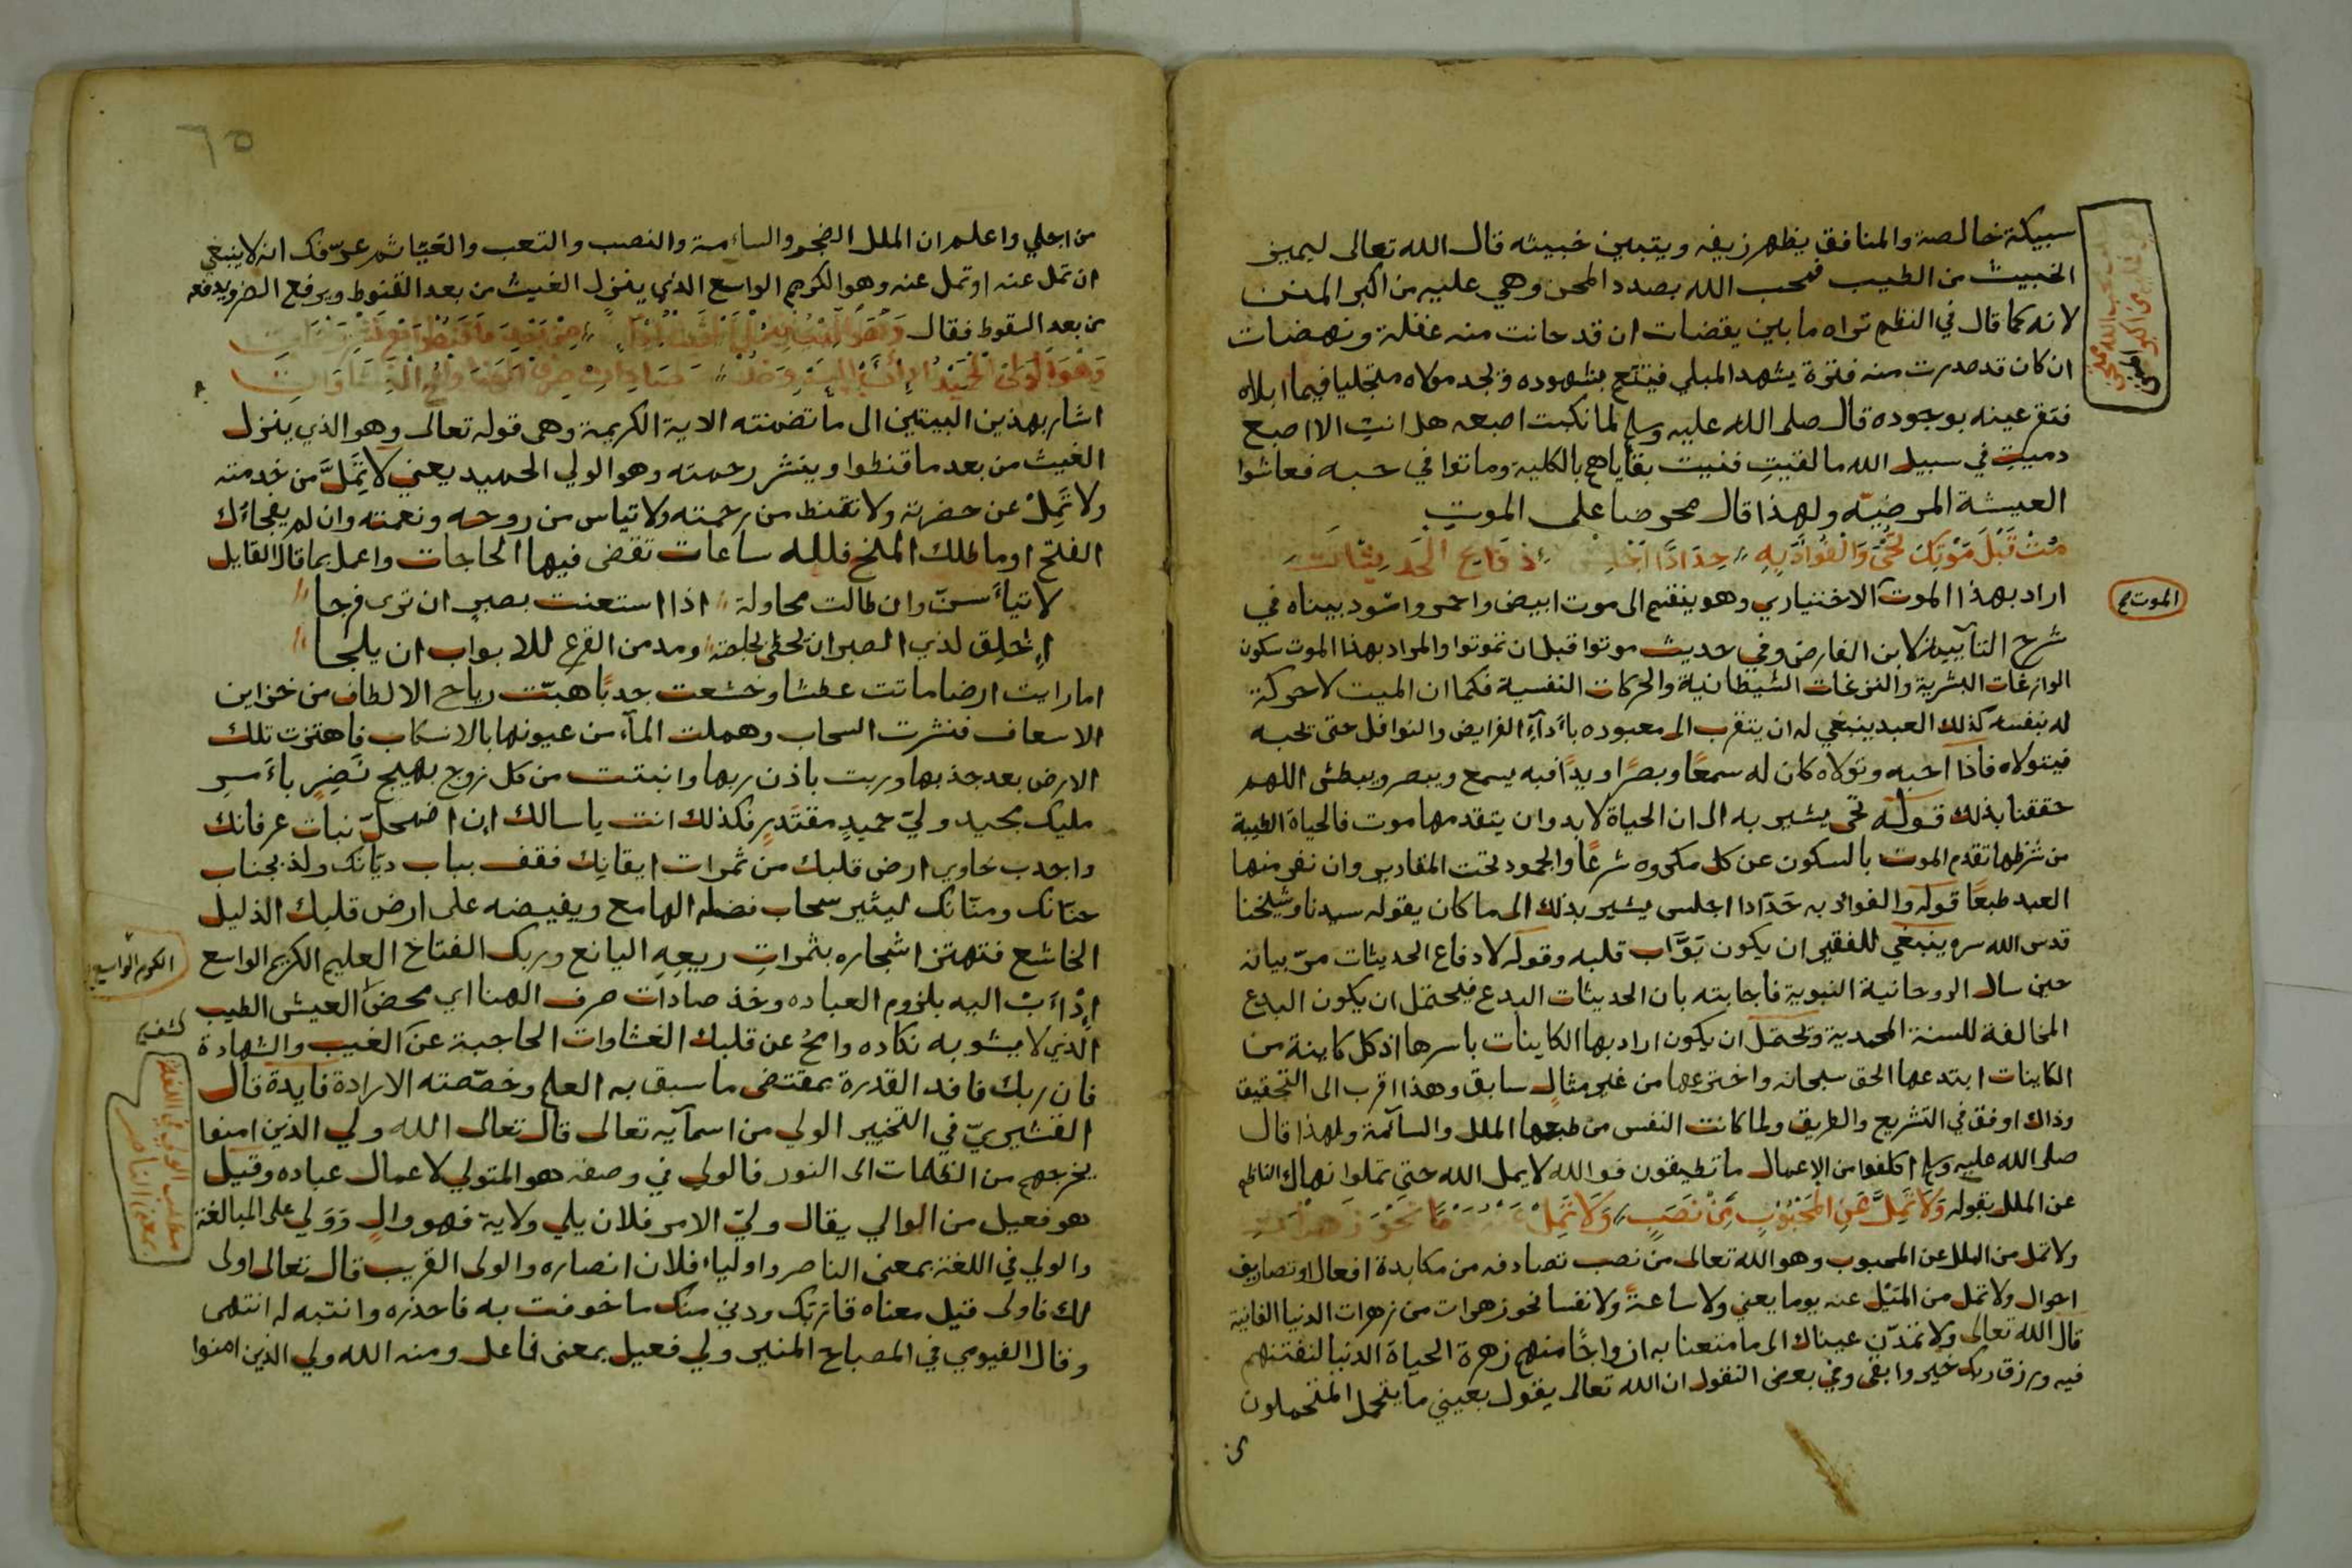 سبيكة خالصة والمنافق يظهر زيفه ويتبين خبيثه قال الله تعالى ليميز
الخبيث من الطيب فمحب الله بصدد المحن وهي عليه من اكبر المنن
لانه كما قال في النظم تراه ما بين يقضات ان قد حانت منه غفلة ونهضات
ان كان قد صدرت منه فترة يشهد المبلي فيتنعم بشهوده ويجد مولاه متجليا فيما ابلاه
فتقر عينه بوجوده قال صلى الله عليه وسلم لما نكبت اصبعه هل انت الا اصبع
دميت في سبيل الله ما لقيت فنيت بقاياهم بالكلية وماتوا في حبه فعاشوا
العيشة المرضيّه ولهذا قال محرضا على الموت
مُتْ قَبْلَ مَوْتِكَ تَحْيَ وَالْفُؤَادَ بِهِ حِدَادًا اجْلِسْ
اراد بهذا الموت الاختياري وهو ينقسم الى موت ابيض واحمر واسود بيناه في
الموت
شرح التآيية لابن الفارض وفي حديث موتوا قبل ان تموتوا والمراد بهذا الموت سكون
الوازغات البشرية والنزغات الشيطانية والحركات النفسية فكما ان الميت لا حركة
له بنفسه كذلك العبد ينبغي له ان يتقرب الى معبوده بأدآء الفرايض والنوافل حتى يحبه
فيتولاه فاذا احبه وتولاه كان له سمعًا وبصرًا ويدًا فبه يسمع ويبصر ويبطش اللهم
حققنا بذلك قوله تحى يشير به الى ان الحياة لا بد وان يتقدمها موت فالحياة الطيبة
من شرطها تقدم الموت بالسكون عن كل مكروه شرعًا والجمود تحت المقادير وان نفر منها
العبد طبعًا قوله والفواد به حدادا اجلس يشير بذلك الى ما كان يقوله سيدنا وشيخنا
قدس الله سره ينبغي للفقير ان يكون بَوَّاب قلبه وقوله لادفاع الحديثات مرّ بيانه
حين سال الروحانية النبوية فاجابته بان الحديثات البدع فيحتمل ان يكون البدع
المخالفة للسنة المحمدية ويحتمل ان يكون اراد بها الكاينات باسرها اذ كل كاينة من
الكاينات ابتدعها الحق سبحانه واخترعها من غير مثال سابق وهذا اقرب الى التحقيق
وذاك اوفق في التشريع والطريق ولما كانت النفس من طبعها الملل والسآمة ولهذا قال
صلى الله عليه وسلم اكلفوا من الاعمال ما تطيقون فوالله لا يمل الله حتى تملوا نهاك الناظم
عن الملل بقوله وَلَا تَمَلَّ عَنِ الْمَحْبُوبِ مِنْ نَصَبٍ وَلَا تَمِلْ
ولا تمل من الملل عن المحبوب وهو الله تعالى من نصب تصادفه من مكابدة افعال او تصاريف
احوال ولا تمل من المَيْل عنه يوما يعني ولا ساعة ولا نفسا نحو زهرات من زهرات الدنيا الفانية
قال الله تعالى ولا تمدّن عيناك الى ما متعنا به ازواجًا منهم زهرة الحياة الدنيا لنفتنهم
فيه ورزق ربك خير وابقى وفي بعض النقول ان الله تعالى يقول بعيني ما يتحمل المتحملون
٦٥
من اجلي واعلم ان الملل الضجر والسأمة والنصب والتعب والعَيّا ثم عرّفك انه لا ينبغي
ان تمل عنه او تمل عنه وهو الكريم الواسع الذي ينزل الغيث من بعد القنوط ويرفع الضر ويدفعه
من بعد السقوط فقال
اشار بهذين البيتين الى ما تضمنته الاية الكريمة وهي قوله تعالى وهو الذي ينزل
الغيث من بعد ما قنطوا وينشر رحمته وهو الولي الحميد يعني لا تَمَلَّ من خدمته
ولا تَمِلْ عن حضرته ولا تقنط من رحمته ولا تياس من روحه ونعمته وان لم يفجاك
الفتح او ماطلك المنح فلله ساعات تقضى فيها الحاجات واعمل بما قال القايل
لا تيأسنّ وان طالت محاولة اذا استعنت بصبر ان ترى فرجا
اخلق لذي الصبر ان يحظى بحاجته ومدمن القرع للابواب ان يلجا
اما رايت ارضا ماتت عطشا وخشعت جدبًا هبّت رياح الالطاف من خزاين
الاسعاف فنشرت السحاب وهملت المآء من عيونها بالانسكاب فاهتزت تلك
الارض بعد جذبها وربت باذن ربها وانبتت من كل زوج بهيج نَضِرٍ بأمر
مليك مجيد وليّ حميدٍ مقتَدِرٍ فكذلك انت يا سالك إن اضمحلّ نبات عرفانك
واجدب خاوي ارض قلبك من ثمرات ايقانِك فقف بباب ديّانك ولذ بجناب
حنّانك ومنّانك ليثير سحاب فضله الهامع ويفيضه على ارض قلبك الذليل
الخاشع فتهتز اشجاره بثمراتِ ريعِهِ اليانع وربك الفتاح العليم الكريم الواسع
إدْأَبْ اليه بلزوم العباده وخذ صادات صرف الهنا اي محض العيش الطيب
الّذي لا يشوبه نكاده وامحُ عن قلبك الغشاوات الحاجبة عن الغيب والشهادة
فان ربك نافد القدرة بمقتضى ما سبق به العلم وخصّصته الارادة فايدة قال
القشيريّ في التحبير الولي من اسمآيه تعالى قال تعالى الله ولي الذين امنوا
يخرجهم من الظلمات الى النور فالولي في وصفه هو المتولي لاعمال عباده وقيل
هو فعيل من الوالي يقال وليّ الامر فلان يلي ولاية فهو والٍ ووَلي على المبالغة
والولي في اللغة بمعنى الناصر واولياء فلان انصاره والولى القريب قال تعالى اولى
لك فاولى قيل معناه قاربك ودنى منك ما خوفت به فاحذره وانتبه له انتهى
وقال الفيومي في المصباح المنير ولي فعيل بمعنى فاعل ومنه الله ولي الذين امنوا